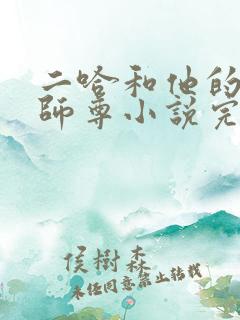 二哈和他的
師尊小說完
侯樹森
未经同意禁止转载